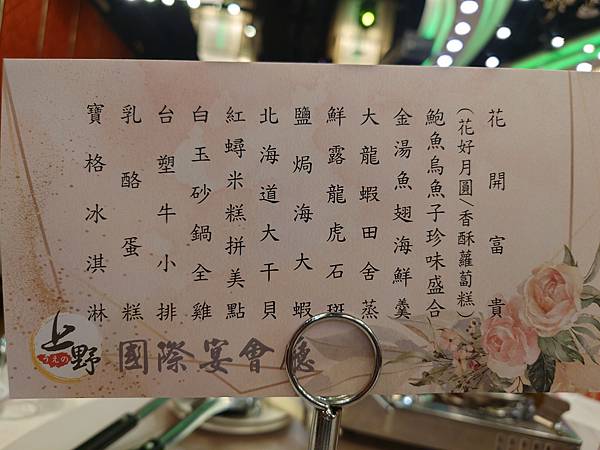 花開富貴
(花好月圓/香酥蘿蔔糕)
鮑魚烏魚子珍味盛合
金湯魚翅海鮮羹
大龍蝦田舍蒸
鮮露龍虎石斑
鹽焗海大蝦
北海道大干貝
紅蟳米糕拼美點
白玉砂鍋全雞
台塑牛小排
乳酪蛋糕
寶格冰淇淋
上野
うえの
國際宴會